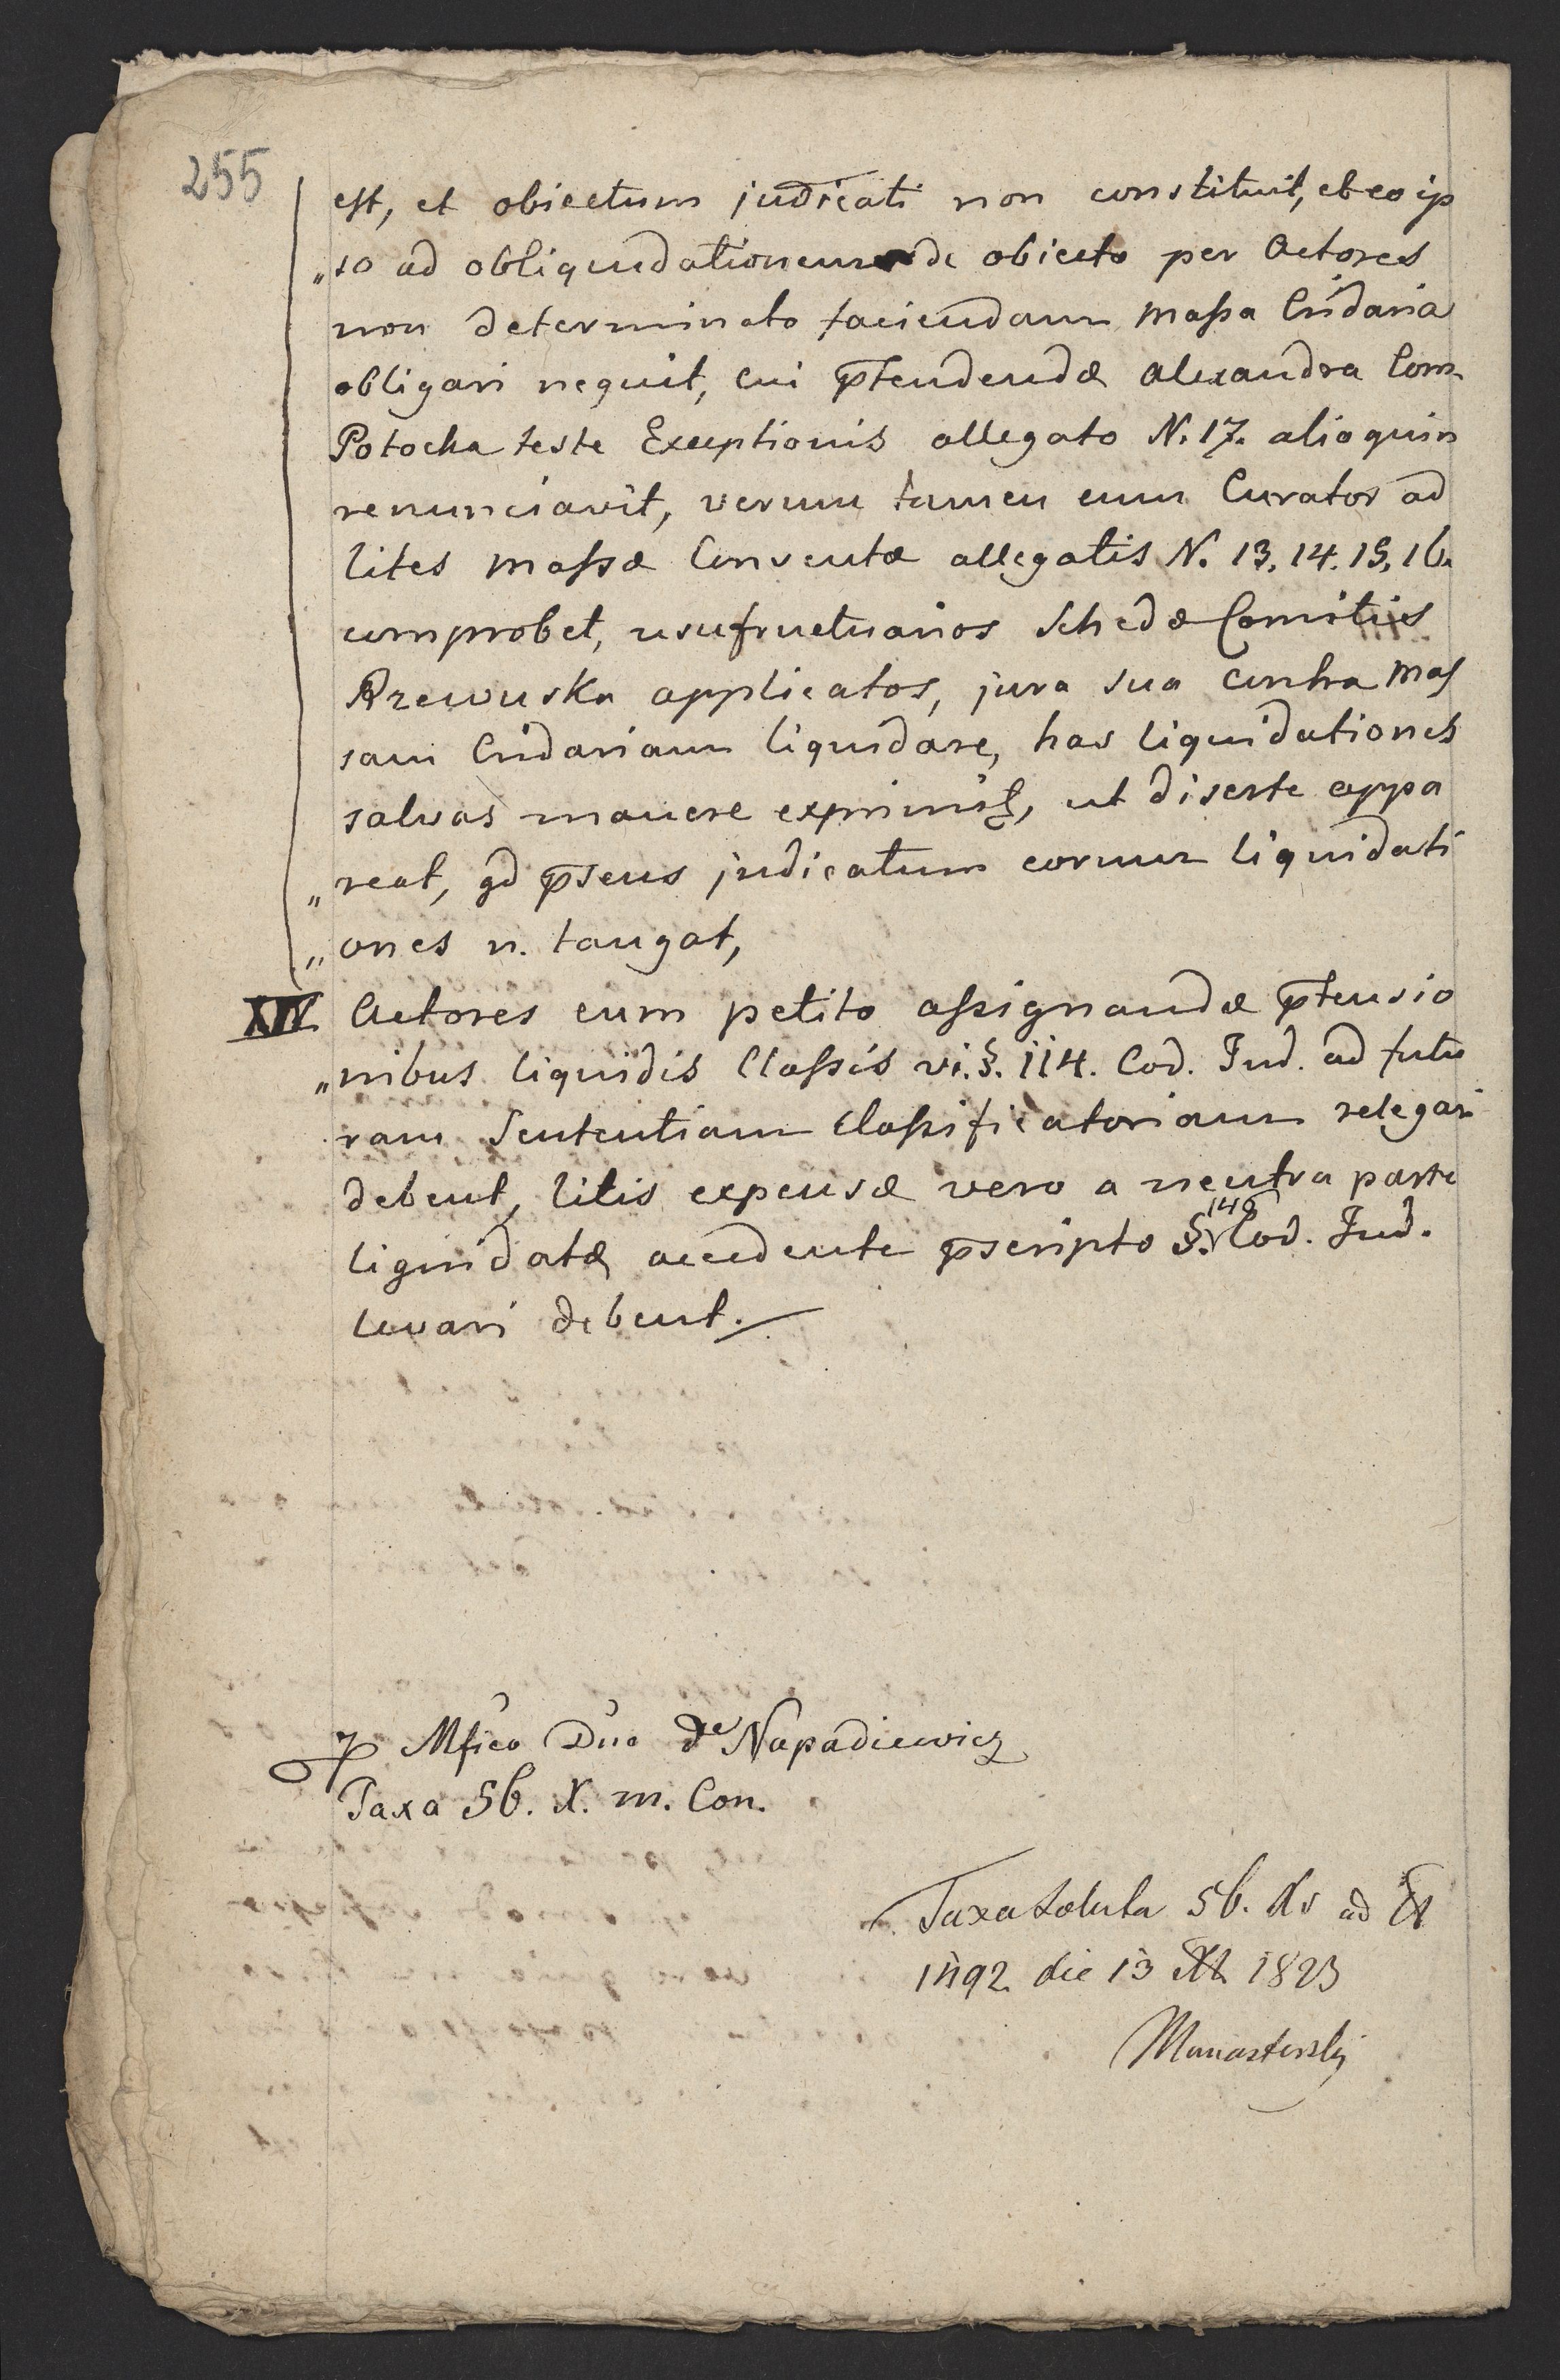 255
est, et obiectum judicati non constituit, et eo ip
„so ad obliquidationem de obiecto per Actores
non determinato faciendam Massa Cridaria
obligari nequit, cui p̄tendendæ Alexandra Com.
Potocka teste Exceptionis allegato N. 17. alioquin
renunciavit, verum tamen cum Curator ad
lites Massæ Conventæ allegatis N. 13. 14. 15. 16.
comprobet, usufructuarios Schedæ Comitis
Rzewuska applicatos, jura sua contra Mas
sam Cridariam liquidare, has liquidationes
salvas manere exprimit̃, ut diserte appa
„reat, qd p̄sens judicatum eorum liquidati
„ones n. tangat,
XIV Actores cum petito assignandæ p̄tensio
„nibus liquidis Classis vi. §. 114. Cod. Jud. ad futu
ram Sententiam Classificatoriam relegari
debent, litis expensæ vero a neutra parte
liquidatæ accedente p̄scripto §. 148 Cod. Jud.
levari debent.
Mfico Dno de Napadiewicz
Taxa 56. X. m. Con.
Taxa Soluta 56. Xs ad
1792 die 13 1823
Monasterski